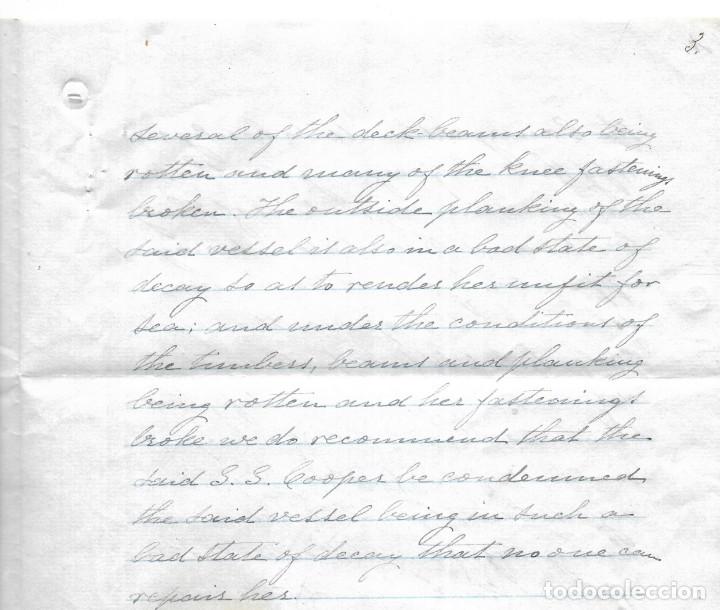 3.
several of the deck beams also being
rotten and many of the knee fastenings
broken. The outside planking of the
said vessel is also in a bad state of
decay so as to render her unfit for
sea; and under the conditions of
the timbers, beams and planking
being rotten and her fastenings
broke we do recommend that the
said S. S. Cooper be condemned
the said vessel being in such a
bad state of decay that no one can
repair her.
todocoleccion